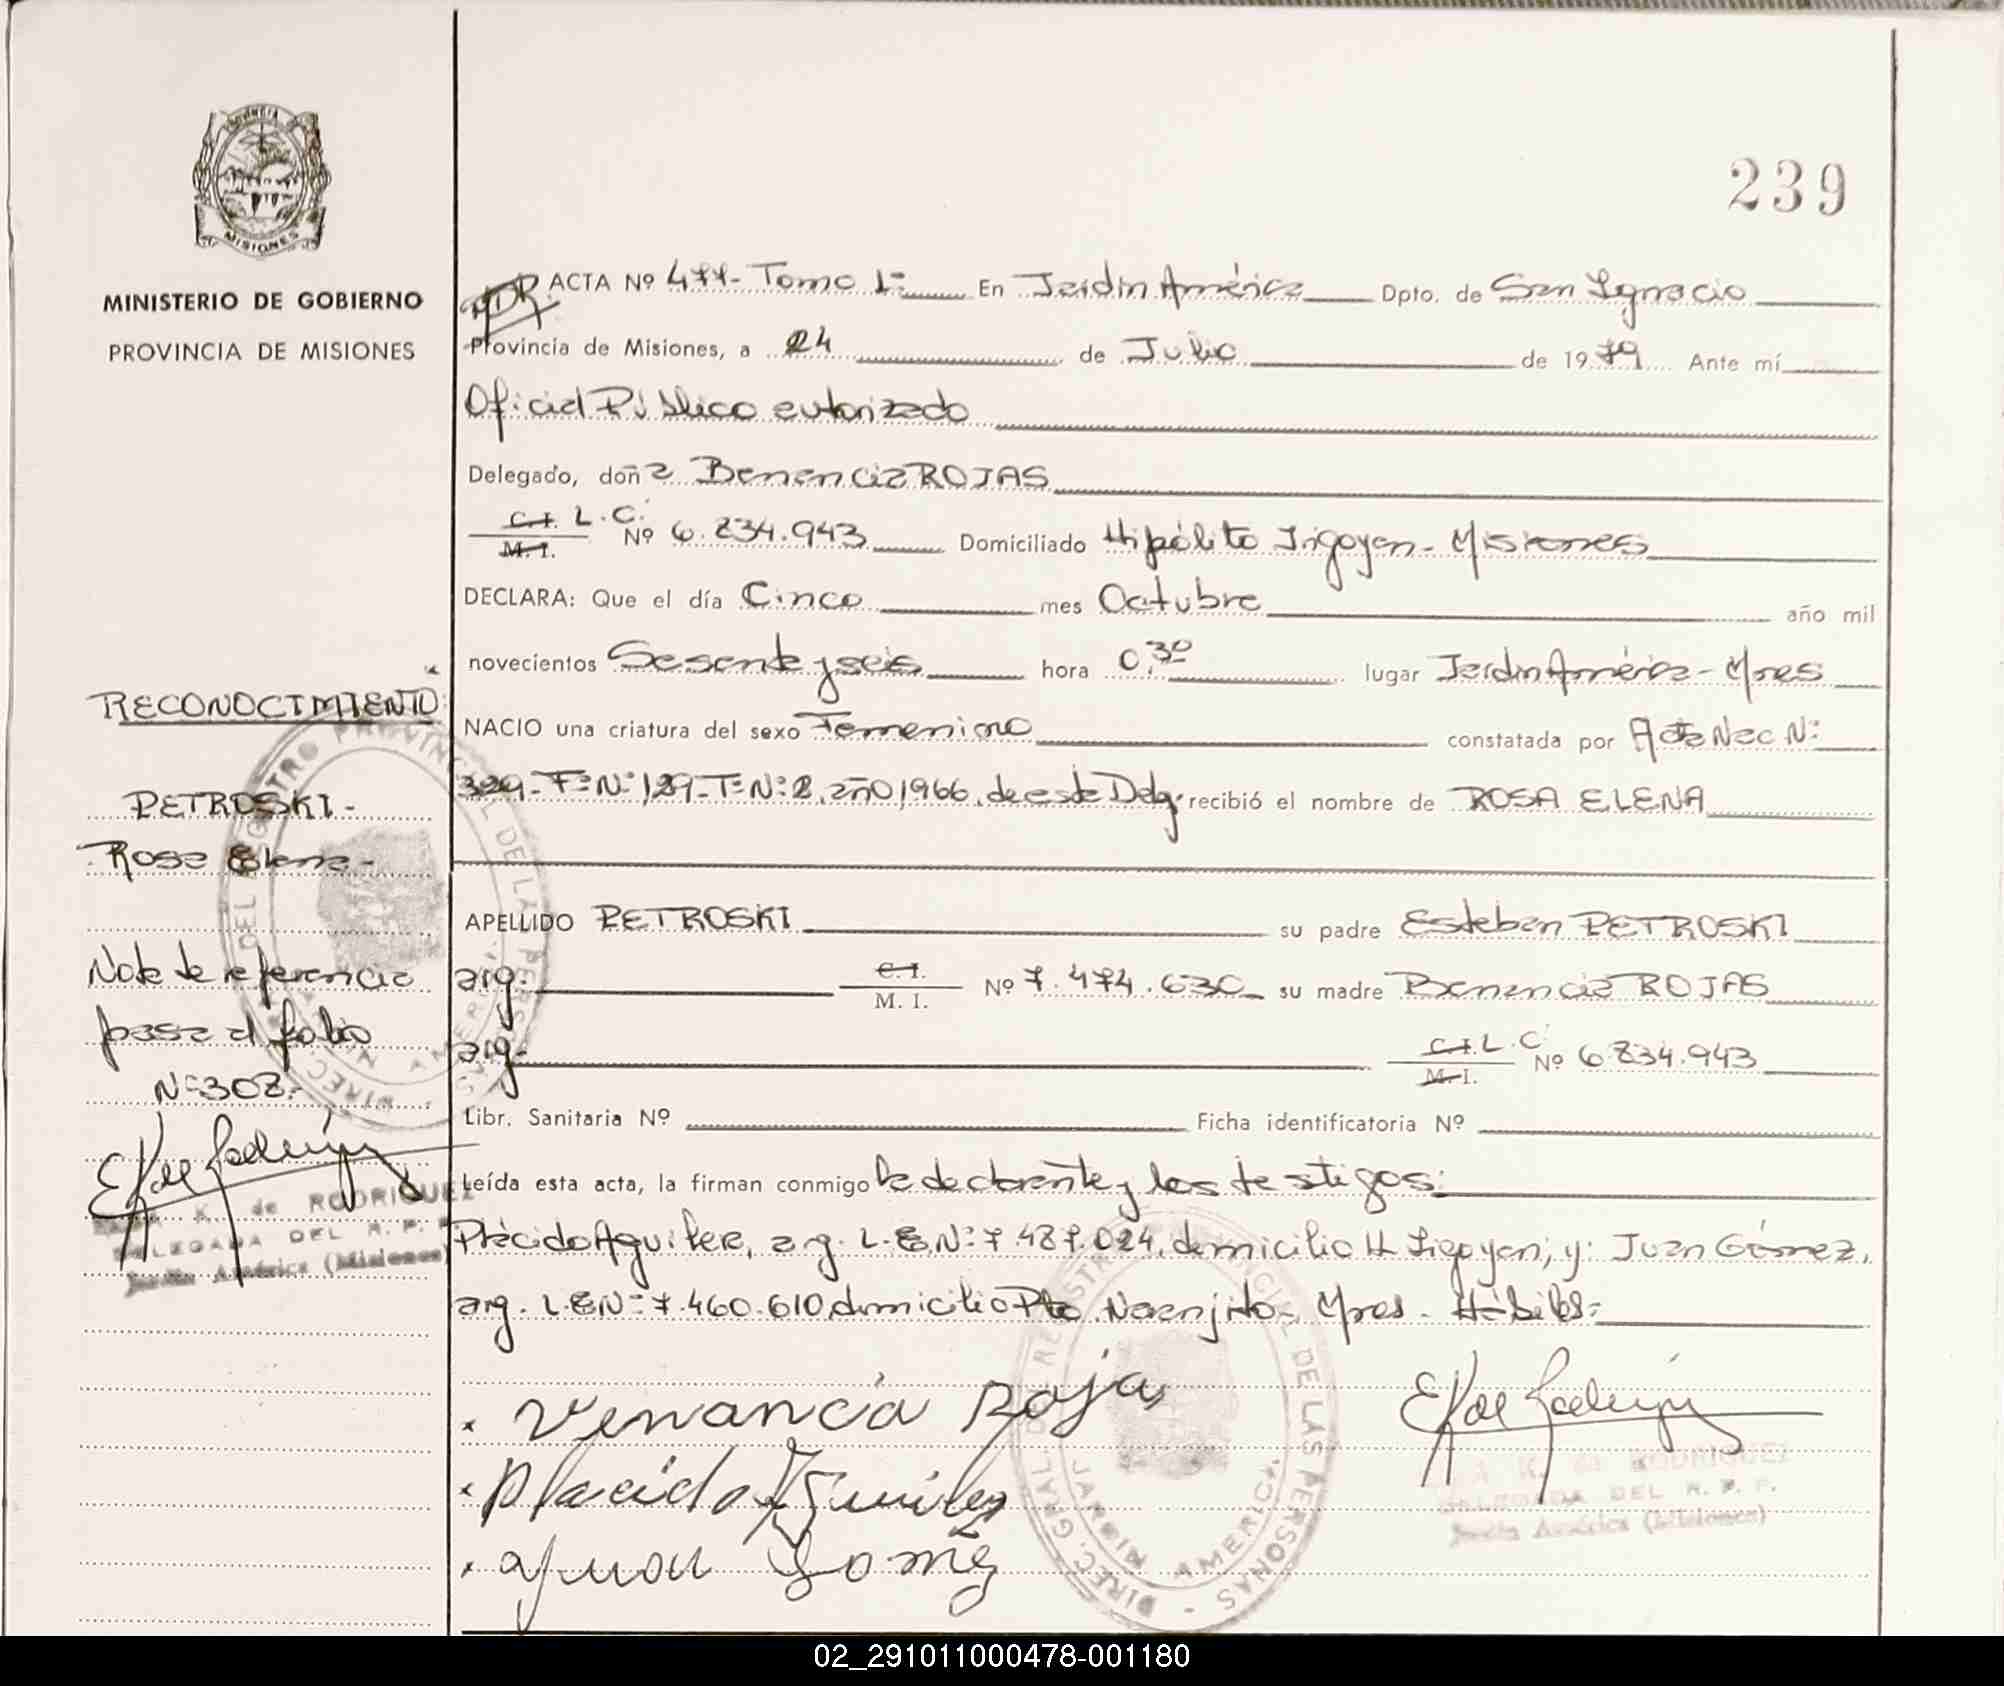 239
PROVINCIA
MISIONES
MINISTERIO DE GOBIERNO
PROVINCIA DE MISIONES
ACTA Nº 477- Tomo 1º En Jardín América Dpto. de San Ignacio
Provincia de Misiones, a 24 de Julio de 1979 Ante mí
Oficial Público autorizado
Delegado, doña Benencia ROJAS
C.I. L.C. M.I. Nº 6.834.943 Domiciliado Hipólito Irigoyen - Misiones
DECLARA: Que el día Cinco mes Octubre año mil
novecientos Sesenta y seis hora 0,30 lugar Jardín América - Mnes
NACIO una criatura del sexo Femenino constatada por Acta Nac Nº
329- Fº Nº 129- Tº Nº 2, año 1966, de este Deleg. recibió el nombre de ROSA ELENA
APELLIDO PETROSKI su padre Esteban PETROSKI
arg. C.I. M.I. Nº 7.474.630 su madre Benencia ROJAS
arg- C.I. L.C. M.I. Nº 6.834.943
Libr. Sanitaria Nº Ficha identificatoria Nº
Leída esta acta, la firman conmigo la declarante y los testigos:
Plácido Aguilera, arg. L.E.Nº 7.487.024, domicilio H. Irigoyen; y: Juan Gómez,
arg. L.E Nº 7.460.610, domicilio Pto. Naranjito - Mnes - Hábiles-
Venancia Rojas
Placido
Juan Gomez
RODRIGUEZ
DELEGADA DEL R. P. P.
Jardín América (Misiones)
DIREC. GRAL. DEL REGISTRO PROVINCIAL DE LAS PERSONAS
JARDIN AMERICA
RECONOCIMIENTO
PETROSKI-
Rosa Elena-
Nota de referencia
pasa al folio
Nº 308.-
K. de RODRIGUEZ
DELEGADA DEL R. P. P.
Jardín América (Misiones)
DIREC. GRAL. DEL REGISTRO PROVINCIAL DE LAS PERSONAS
JARDIN AMERICA
02_291011000478-001180